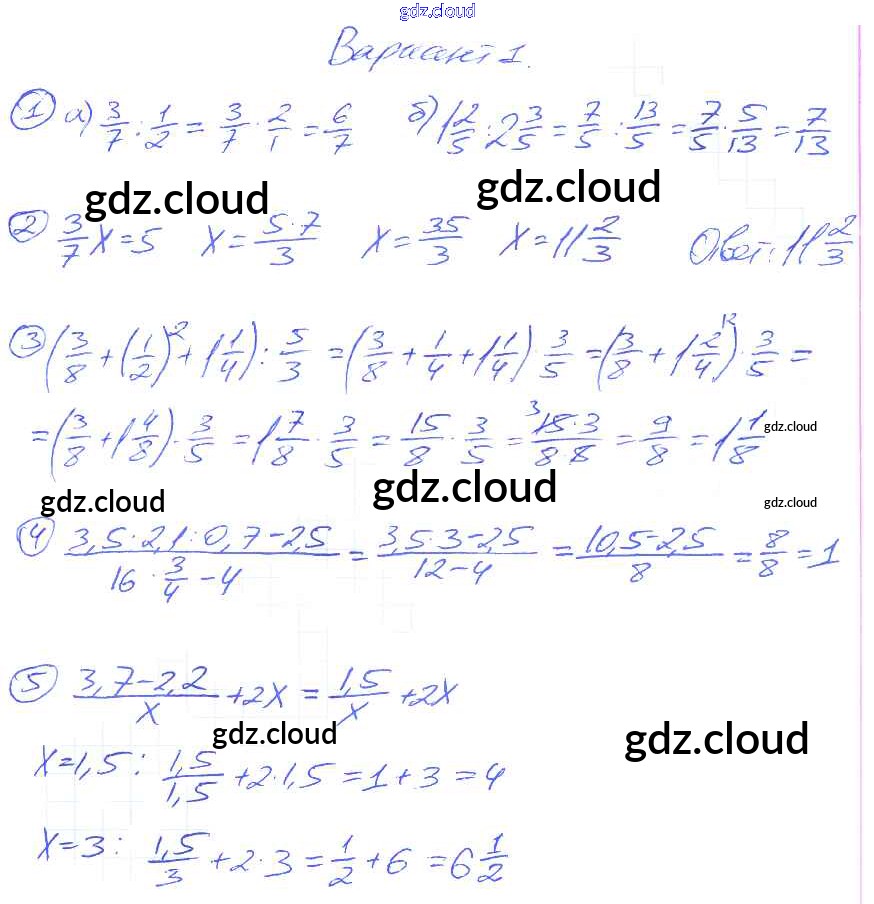 gdz.cloud
Вариант 1.
① а) 3/7 : 1/2 = 3/7 · 2/1 = 6/7 б) 1 2/5 : 2 3/5 = 7/5 : 13/5 = 7/5 · 5/13 = 7/13
gdz.cloud gdz.cloud
② 3/7 x = 5 x = 5·7/3 x = 35/3 x = 11 2/3 Ответ: 11 2/3
③ (3/8 + (1/2)² + 1 1/4) : 5/3 = (3/8 + 1/4 + 1 1/4) · 3/5 = (3/8 + 1 2/4) · 3/5 =
= (3/8 + 1 4/8) · 3/5 = 1 7/8 · 3/5 = 15/8 · 3/5 = 3 15·3/8·8 = 9/8 = 1 1/8 gdz.cloud
gdz.cloud gdz.cloud gdz.cloud
④ 3,5·2,1:0,7-2,5/16 · 3/4 - 4 = 3,5·3-2,5/12-4 = 10,5-2,5/8 = 8/8 = 1
⑤ 3,7-2,2/x + 2x = 1,5/x + 2x
gdz.cloud gdz.cloud
x=1,5: 1,5/1,5 + 2·1,5 = 1+3 = 4
x=3: 1,5/3 + 2·3 = 1/2 + 6 = 6 1/2